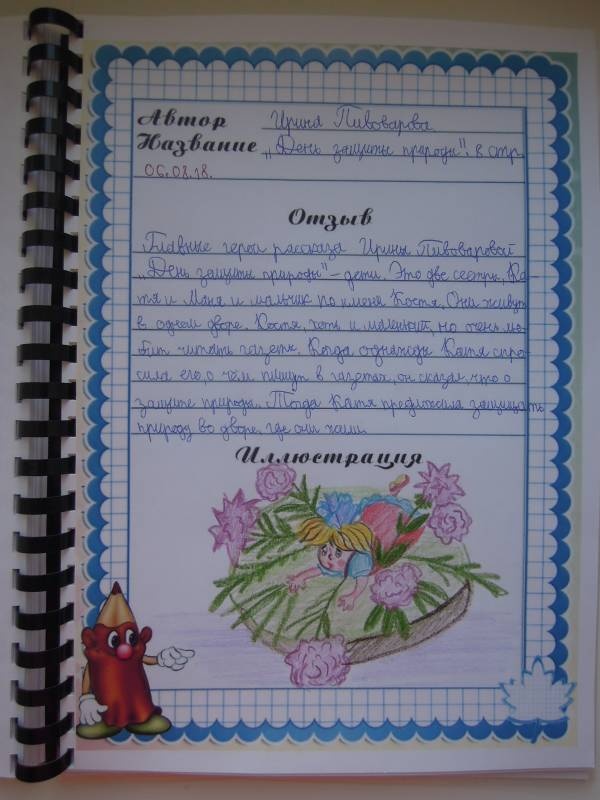 Автор Ирина Пивоварова
Название „День защиты природы". 8 стр.
06.08.18.
Отзыв
Главные герои рассказа Ирины Пивоваровой
„День защиты природы" – дети. Это две сестры, Ка-
тя и Маня и мальчик по имени Костя. Они живут
в одном дворе. Костя, хоть и маленький, но очень лю-
бит читать газеты. Когда однажды Катя спро-
сила его, о чём пишут в газетах, он сказал, что о
защите природы. Тогда Катя предложила защищать
природу во дворе, где они жили.
Иллюстрация